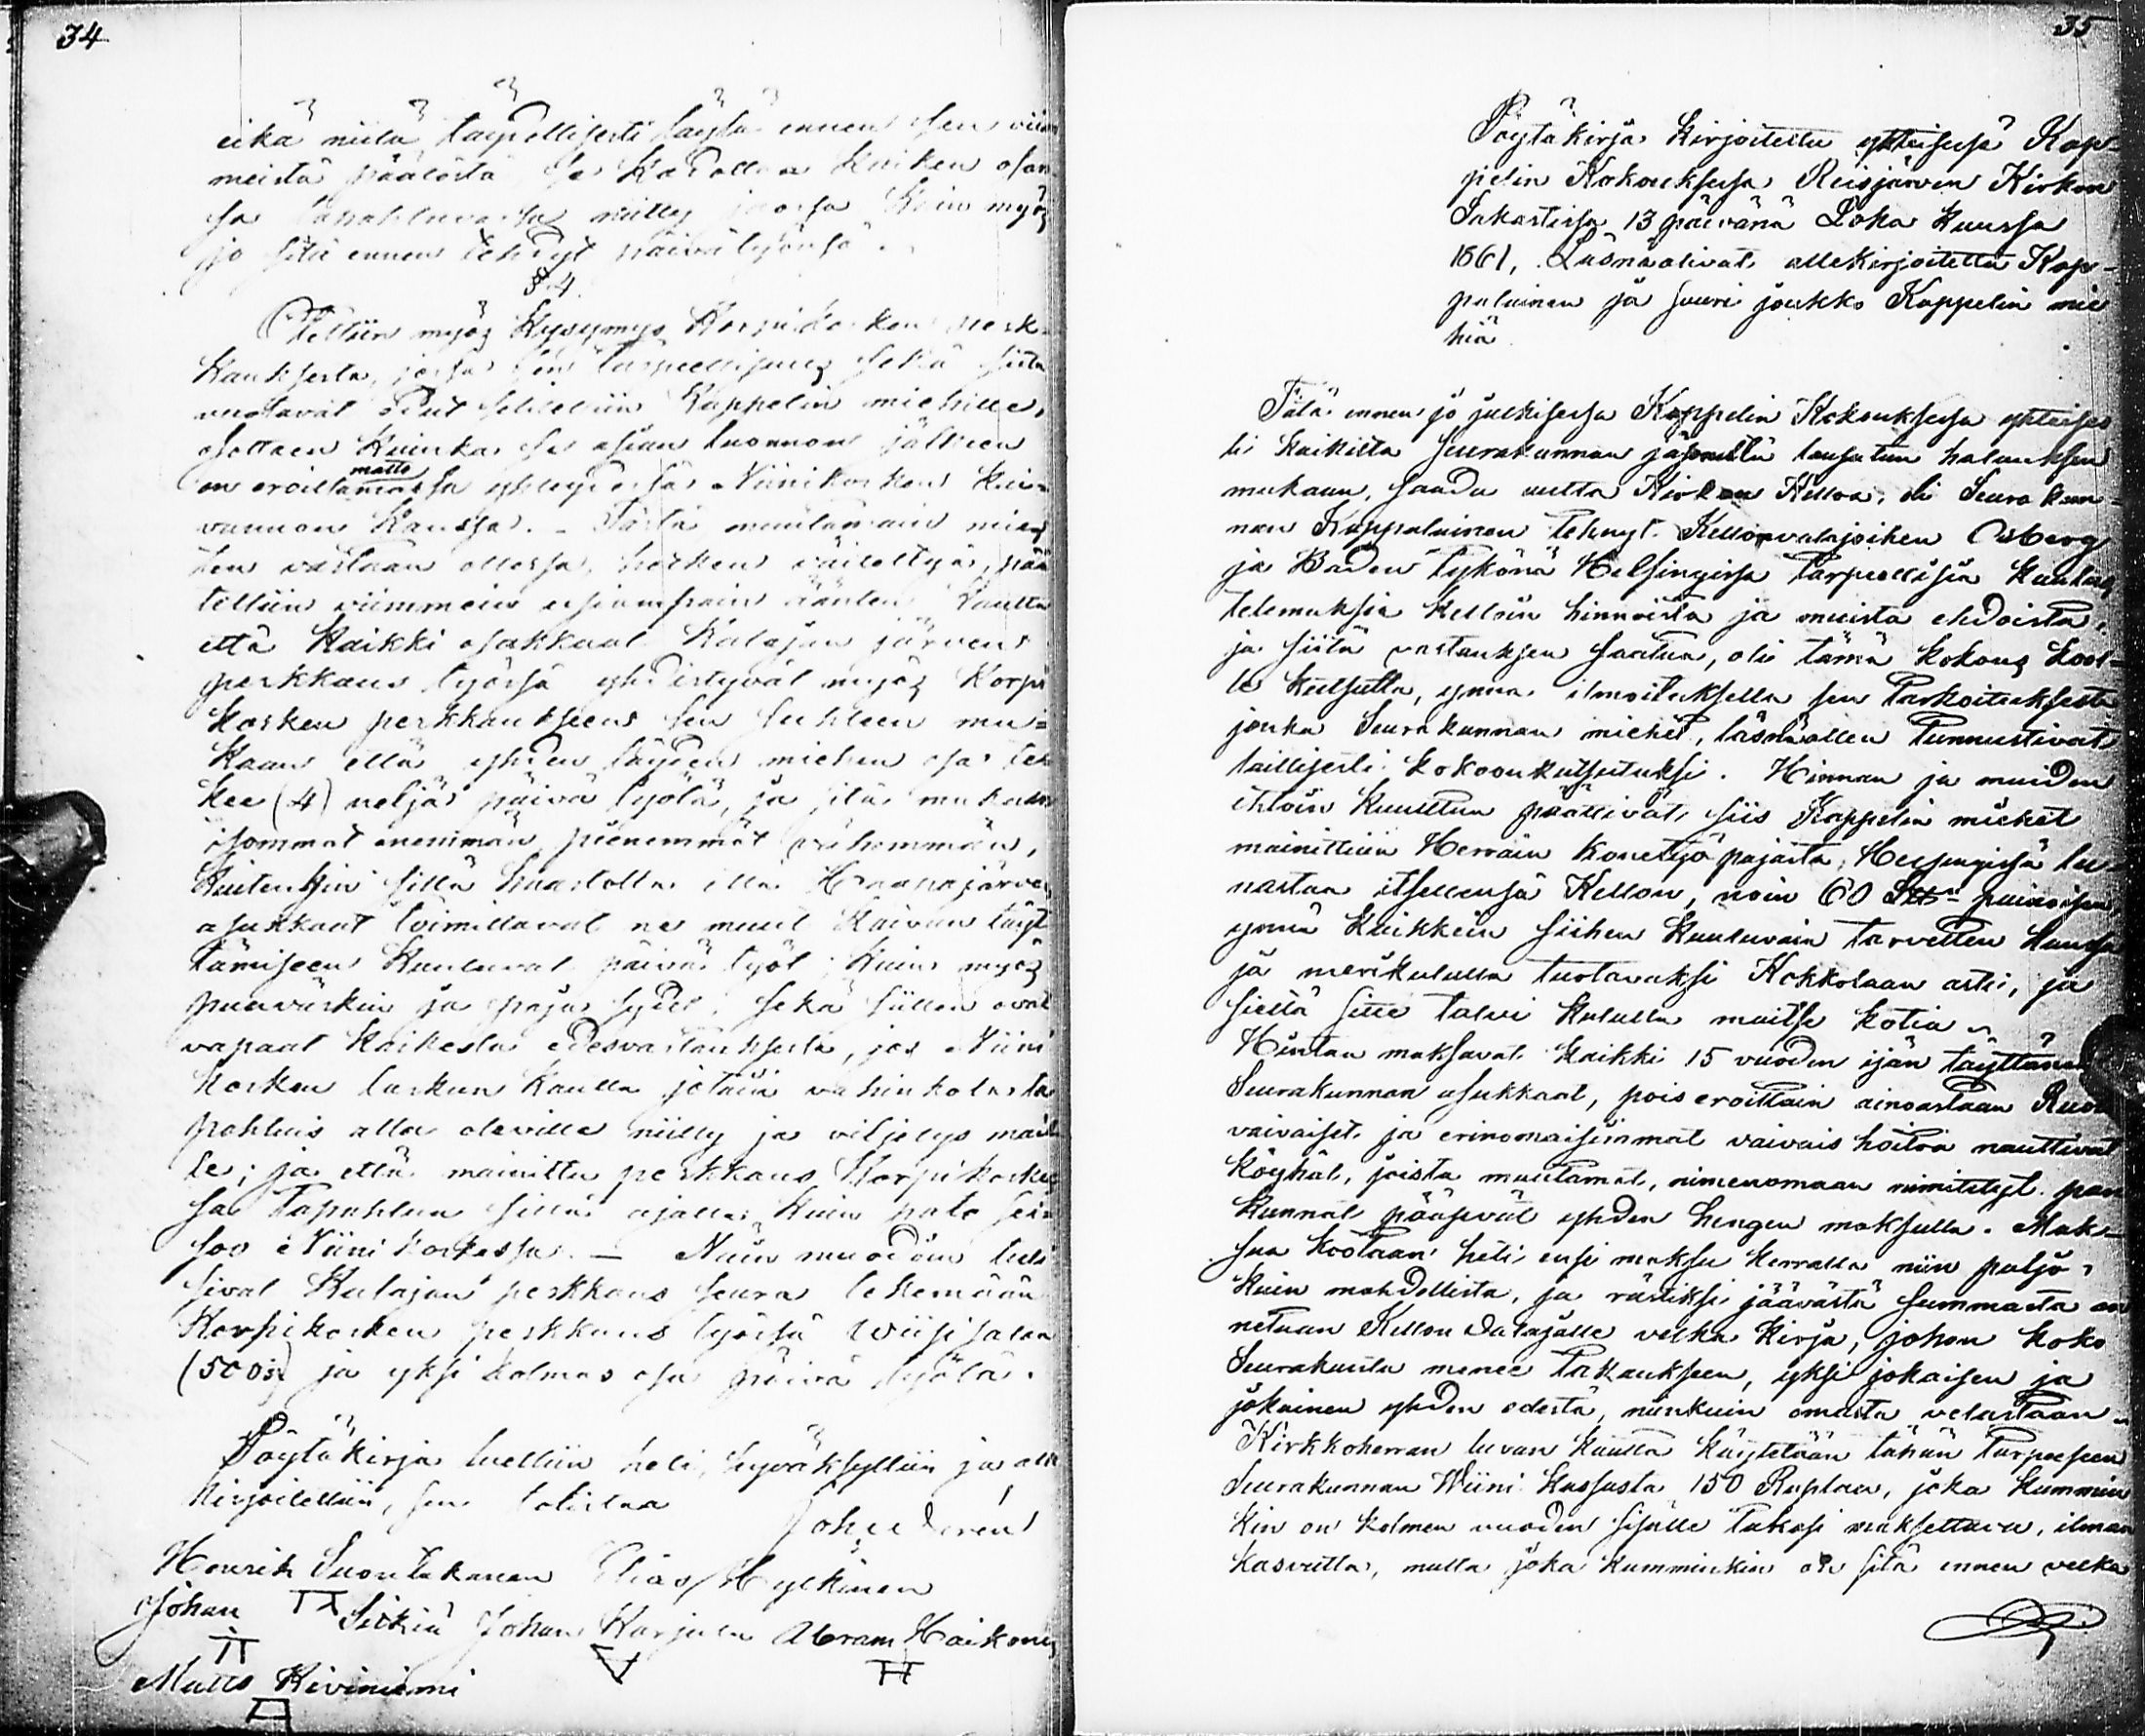 34
eikä niitä täydellisesti täytä ennen sen viim
meistä päälöstä se kadollaa kaiken osan
sa tapahtuvassa niitty jaossa kuin myös
jo sitä ennen tehdyt päivätyönsä.
§ 4.
Otettiin myös kysymys Korpikosken perk-
kauksesta, jossa sen tarpeellisuus sekä siitä
vuotavat edut selitettiin Kappelin miehille,
osottaen kuinka se asian luonnon jälkeen
on eroittamatto yhteydessä Niinikosken kai-
vannon kanssa. - Tästä muutamain mies
ten vastaan ollessa, hetken väiteltyä, pää
tettiin viimmein usiampain äänten kautta
että kaikki osakkaat Kalajan järven
perkkaus työssä yhdistyvät myös Korpi
kosken perkkaukseen sen suhteen mu-
kaan että yhden täyden miehen osa te
kee (4) neljä päivä työtä, ja sitä mukaan
isommat enemmän, pienemmät vähemmän,
kuitenkin sillä huastolla että Haapajärven
asukkaat toimittavat ne muut kaivun täyt
tämiseen kuuluvat päivä työt, kuin myös
puuvärkin ja paja sydet, sekä silleen ovat
vapaat kaikesta edesvastauksesta, jos Niini
kosken laskun kautta jotain vahinkolasta
pahtuis alla oleville niitty ja viljelys mail
le; ja että mainittu perkkaus Korpikoskes
sa tapahtuu sillä ajalla kuin pato sei-
soo Niinikoskessa. — Näin muodoin tuli
sivat Kalajan perkkaus seura tekemään
Korpikosken perkkaus työssä wiisisataa
(500) ja yksi kolmas osa päivä työtä.
Pöytäkirja luettiin heti, hyväksyttiin ja alle
kirjoitettiin, sen todistaa
Henrik Suontakanen Elias Hylkinen
Johan Sirkiä Johan Karjula Abram Haikonen
Matts Kiviniemi
35
Pöytäkirja kirjoitettu yhteisessä Kap-
pelin Kokouksessa Reisjärven Kirkon
Sakastissa 13 päivänä Loka kuussa
1861, Läsnäolivat allekirjoitettu Kap-
palainen ja suuri joukko Kappelin mie
hiä.
Tätä ennen jo julkisessa Kappelin Kokouksessa yhteises
ti kaikilta seurakunnan jäseniltä lausutun halauksen
mukaan, saada uutta Kirkon Kelloa, oli Seurakun-
nan Kappalainen tehnyt Kellonvalajoihen Osberg
ja Baden tykönä Helsingissä tarpeellisia kuulus
telemuksia Kellon hinnoista ja muista ehdoista,
ja siitä vastauksen saatua, oli tämä kokous kool-
le kutsuttu, ynnä ilmoituksella sen tarkoituksesta
jonka Seurakunnan miehet, läsnäollen tunnustivat
laillisesti kokoonkutsutuksi. Hinnan ja muiden
ehtoin kuultua päättivät siis Kappelin miehet
mainittuin Herrain konetyö pajasta Helsingissä lu-
nastaa itsellensä Kellon, noin 60 painoisen
ynnä kaikkein siihen kuuluvain tarvetten kanssa
ja merikululla tuotavaksi Kokkolaan asti, ja
sieltä sitte talvi kululla maitse kotia.
Hintaa maksavat kaikki 15 vuoden ijän täyttäneet
Seurakunnan asukkaat, pois eroittain ainoastaan Ruo
vaivaiset ja erinomaisimmat vaivais hoitoa nauttivat
köyhät, joista muutamat, nimenomaan nimitetyt paris
kunnat pääsevät yhden hengen maksulla. Mak-
sua kootaan heti ensi maksu kerralla niin paljo
kuin mahdollista, ja rästiksi jäävästä summasta an
netaan Kellon valajalle velka kirja, johon koko
Seurakunta menee takaukseen, yksi jokaisen ja
jokainen yhden edestä, niinkuin omasta velastaan.
Kirkkoherran luvan kautta käytetään tähän tarpeeseen
Seurakunnan Wiini kassasta 150 Ruplaa, joka kummin
kin on kolmen vuoden sisälle takasi maksettava, ilman
kasvutta, mutta joka kumminkin on sitä ennen velka